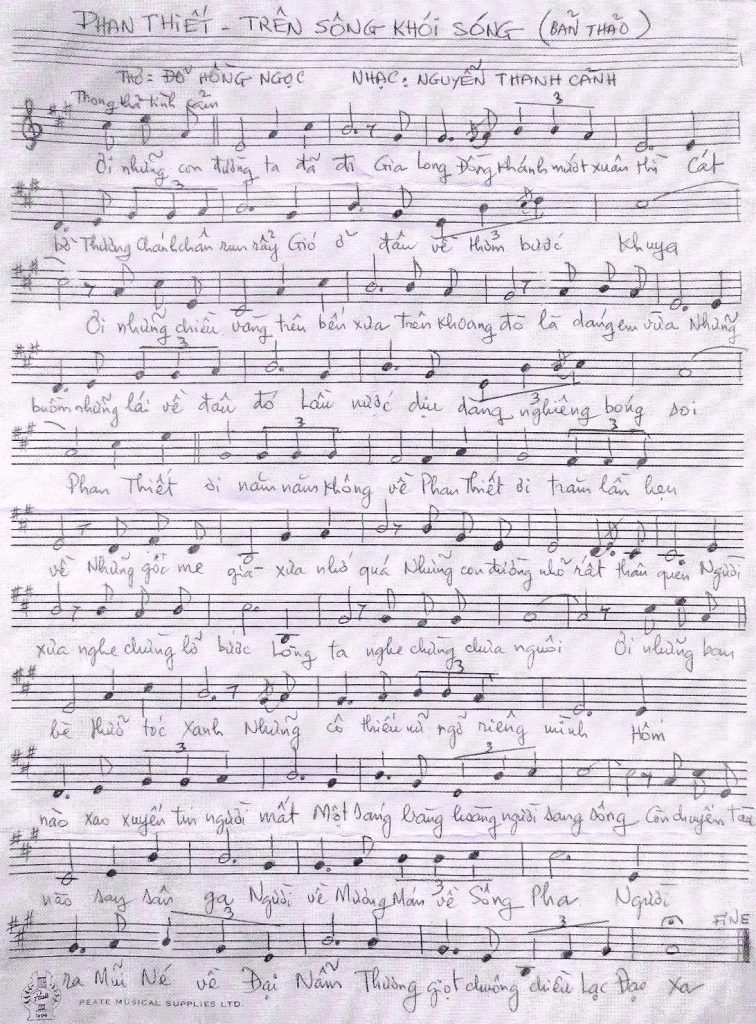 PHAN THIẾT - TRÊN SÔNG KHÓI SÓNG (BẢN THẢO)
THƠ: ĐỖ HỒNG NGỌC NHẠC: NGUYỄN THANH CẢNH
Thong thả tình cảm
3
Ơi những con đường ta đã đi Gia Long Đồng Khánh mướt xuân thì Cát
3
bờ Thương Chánh chân run rẩy Gió ở đâu về thơm bước khuya
3
Ơi những chiều vàng trên bến xưa Trên khoang đò là dáng em vừa Những
3
buồm những lái về đâu đó Lần nước dịu dàng nghiêng bóng soi
3
3 3
Phan Thiết ơi năm năm không về Phan Thiết ơi trăm lần hẹn
về Những gốc me già xưa nhớ quá Những con đường nhỏ rất thân quen Người
xưa nghe chừng lỡ bước Lòng ta nghe chừng chưa nguôi Ơi những bạn
3
bè thuở tóc xanh Những cô thiếu nữ ngõ riêng mình Hôm
3 3
nào xao xuyến tin người mất Một sáng bàng hoàng người sang sông Còn chuyến tàu
nào say sân ga Người về Mương Mán về Sông Pha Người
3
FINE
3 3
ra Mũi Né về Đại Nẫm Thương giọt chuông chiều Lạc Đạo xa
PEATE MUSICAL SUPPLIES LTD.